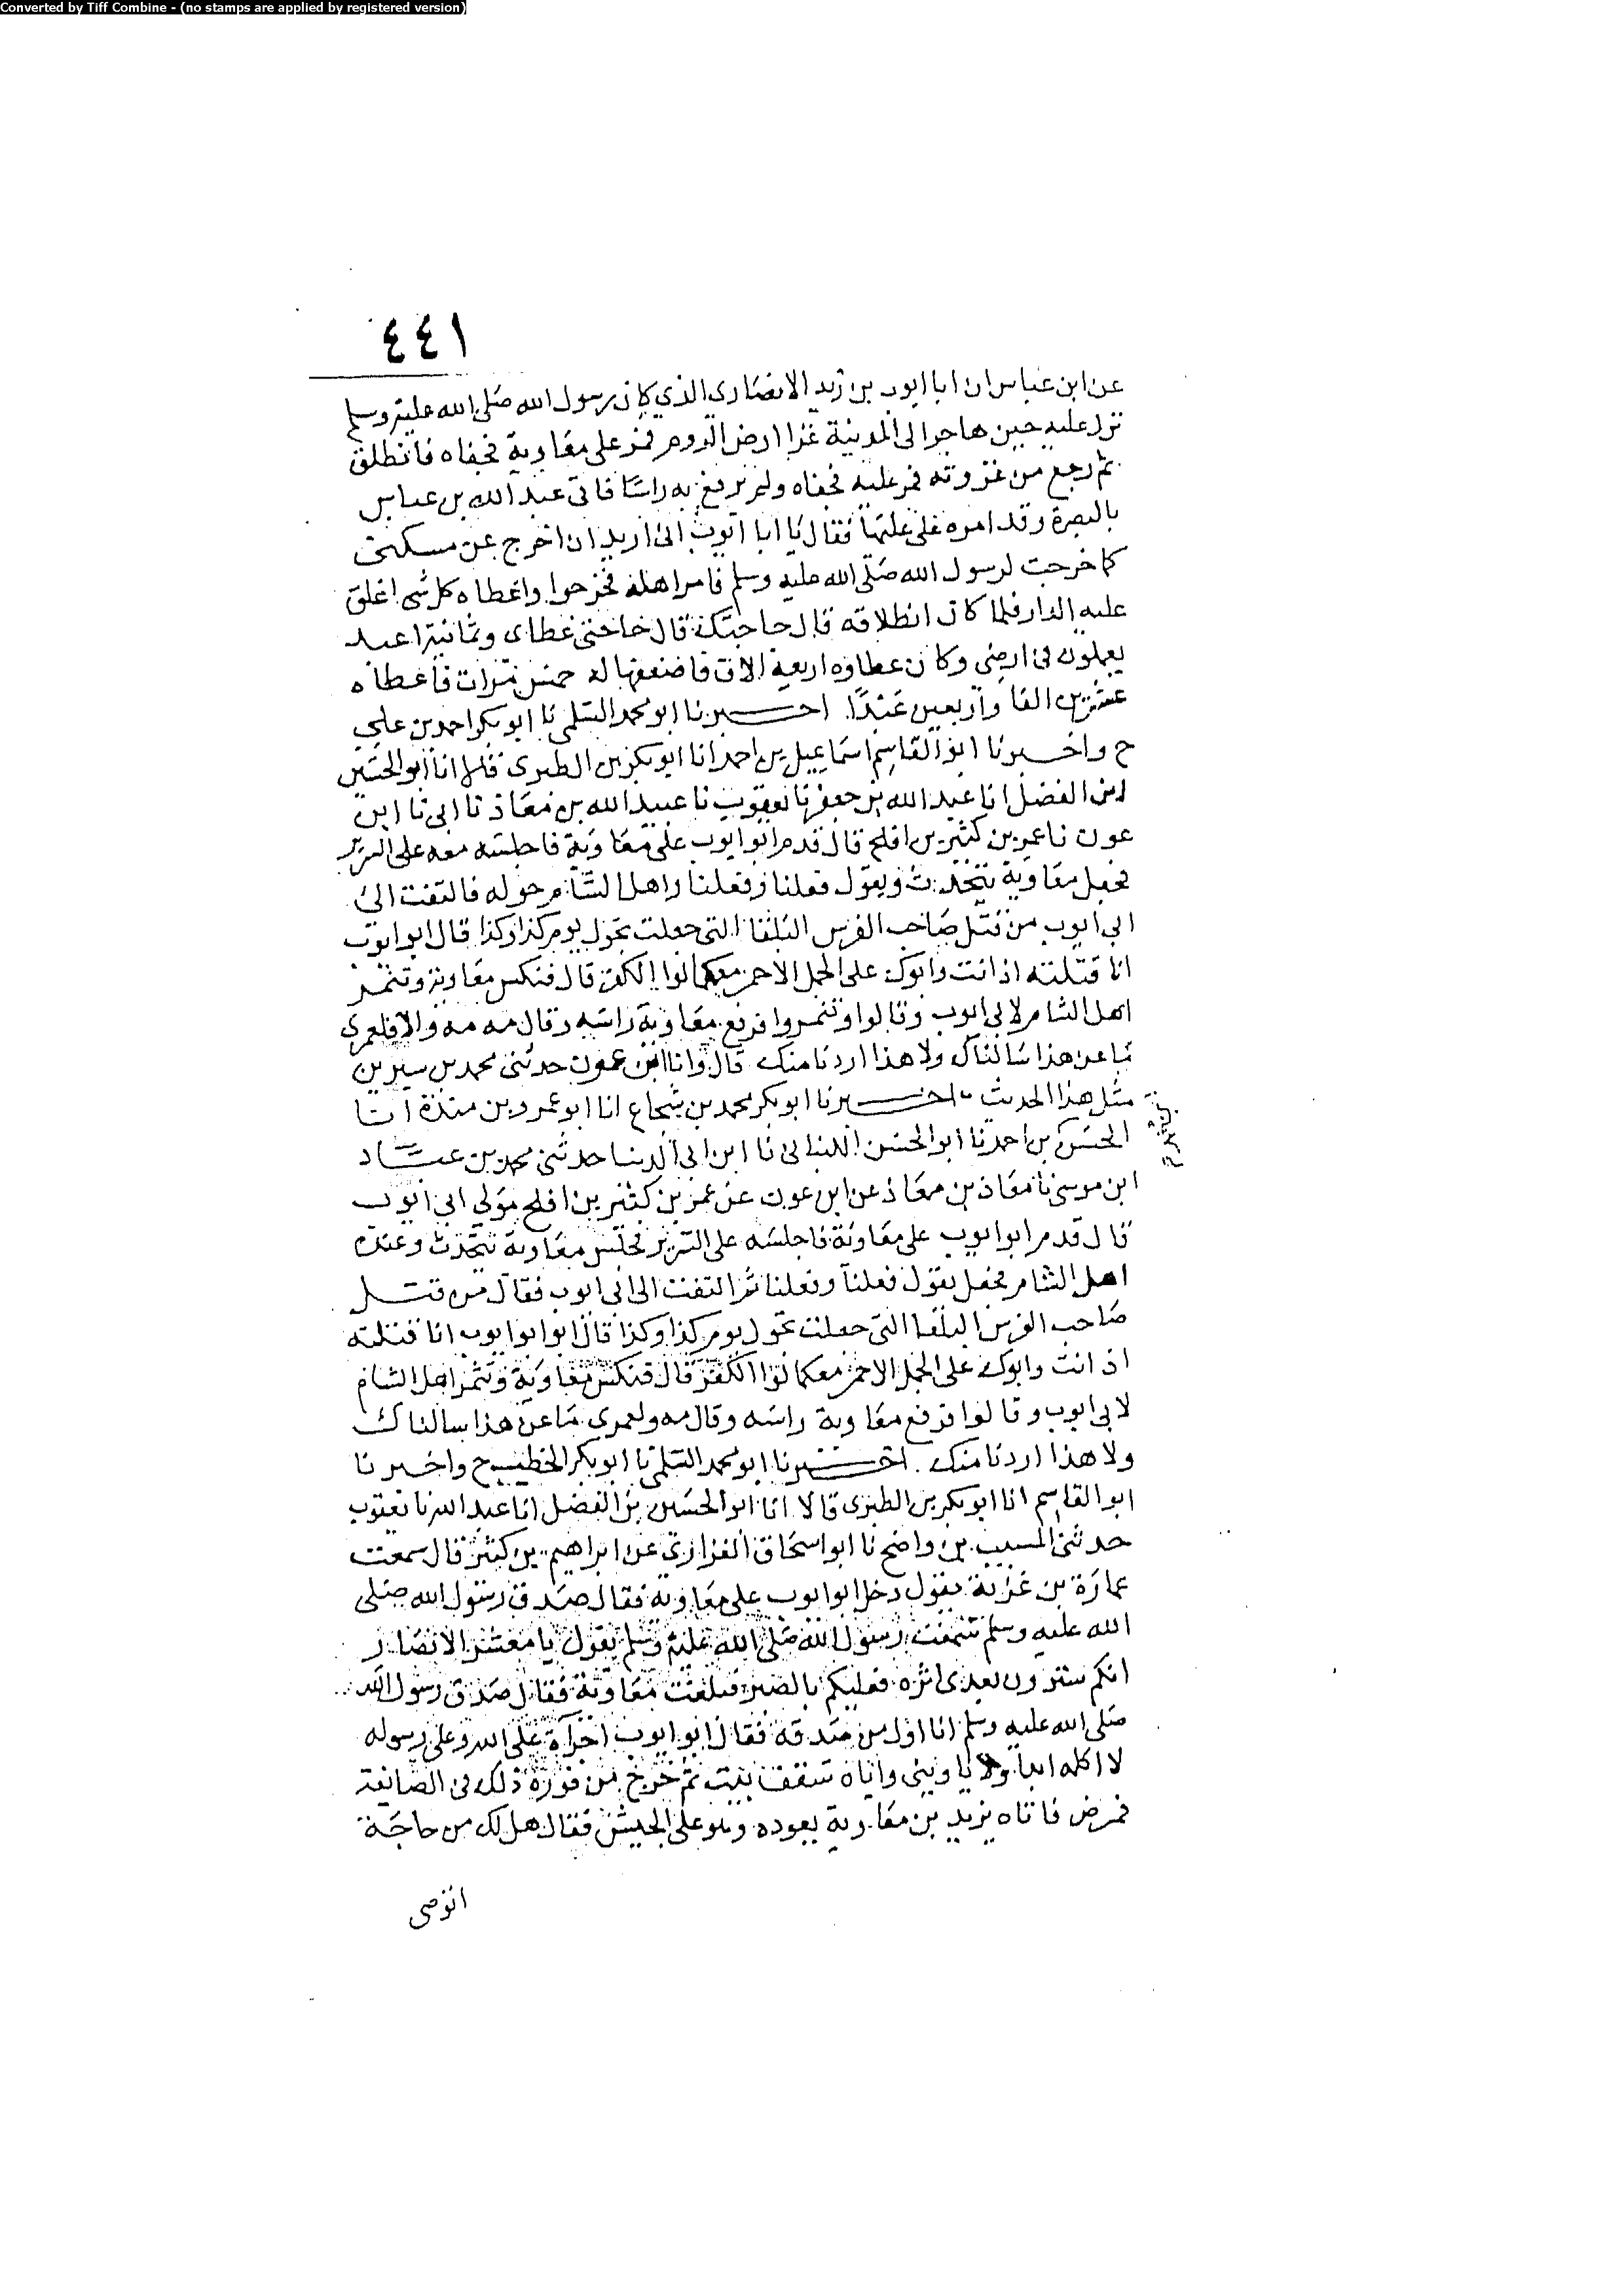 Converted by Tiff Combine - (no stamps are applied by registered version)
٤٤١
عن ابن عباس ان ابا ايوب بن زيد الانصاري الذي كان رسول الله صلى الله عليه وسلم
نزل عليه حين هاجر الى المدينة غزا ارض الروم فمر على معاوية فجفاه فانطلق
ثم رجع من غزوته فمر عليه فجفاه ولم يرفع به راسا فاتى عبد الله بن عباس
بالبصرة وقد امره علي عليها فقال يا ابا ايوب اني اريد ان اخرج عن مسكني
كما خرجت لرسول الله صلى الله عليه وسلم فامر اهله فخرجوا واعطاه كل شي اغلق
عليه الدار فلما كان انطلاقه قال حاجتك قال حاجتي عطاي وثمانية اعبد
يعملون في ارضي وكان عطاوه اربعة الاف فاضعفها له خمس مرات فاعطاه
عشرين الفا واربعين عبدا. اخبرنا ابو محمد السلمي نا ابو بكر احمد بن علي
ح واخبرنا ابو القاسم اسماعيل بن احمد انا ابو بكر بن الطبري قالا انا ابو الحسين
ابن الفضل انا عبد الله بن جعفر نا يعقوب نا عبيد الله بن معاذ نا ابي نا ابن
عون نا عمر بن كثير بن افلح قال قدم ابو ايوب على معاوية فاجلسه معه على السرير
فجعل معاوية يتحدث ويقول فعلنا وفعلنا واهل الشام حوله فالتفت الى
ابي ايوب من قتل صاحب الفرس البلقا التي جعلت تجول يوم كذا وكذا قال ابو ايوب
انا قتلته اذ انت وابوك على الجمل الاحمر معكما لوا الكفر قال فنكس معاوية وتنمر
اهل الشام لابي ايوب وقالوا وتنمروا فرفع معاوية راسه وقال مه مه والا فلعمري
ما عن هذا سالناك ولا هذا اردنا منك قال وانا ابن عون حدثني محمد بن سيرين
مثل هذا الحديث اخبرنا ابو بكر محمد بن شجاع انا ابو عمرو بن مندة انا
الحسن بن احمد نا ابو الحسن اللنباني نا ابن ابي الدنيا حدثني محمد بن عباد
ابن موسى نا معاذ بن معاذ عن ابن عون عن عمر بن كثير بن افلح مولى ابي ايوب
قال قدم ابو ايوب على معاوية فاجلسه على السرير فجلس معاوية يتحدث وعنده
اهل الشام فجعل يقول فعلنا وفعلنا ثم التفت الى ابي ايوب فقال من قتل
صاحب الفرس البلقا التي جعلت تجول يوم كذا وكذا قال ابو ايوب انا قتلته
اذ انت وابوك على الجمل الاحمر معكما لوا الكفر قال فنكس معاوية وتنمر اهل الشام
لابي ايوب وقالوا فرفع معاوية راسه وقال مه ولعمري ما عن هذا سالناك
ولا هذا اردنا منك. اخبرنا ابو محمد السلمي نا ابو بكر الخطيب ح واخبرنا
ابو القاسم انا ابو بكر بن الطبري قالا انا ابو الحسين بن الفضل انا عبد الله نا يعقوب
حدثني المسيب بن واضح نا ابو اسحاق الفزاري عن ابراهيم بن كثير قال سمعت
عمارة بن غزية يقول دخل ابو ايوب على معاوية فقال صدق رسول الله صلى
الله عليه وسلم سمعت رسول الله صلى الله عليه وسلم يقول يا معشر الانصار
انكم سترون بعدي اثره فعليكم بالصبر فبلغت معاوية فقال صدق رسول الله
صلى الله عليه وسلم انا اول من صدقه فقال ابو ايوب اجراة على الله وعلى رسوله
لا اكلمه ابدا ولا ياويني واياه سقف بيت ثم خرج من فوره ذلك في الصائفة
فمرض فاتاه يزيد بن معاوية يعوده وهو على الجيش فقال هل لك من حاجة